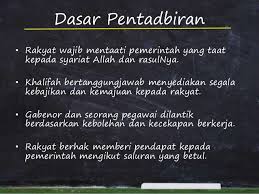 Dasar Pentadbiran
• Rakyat wajib mentaati pemerintah yang taat
kepada syariat Allah dan rasulNya.
• Khalifah bertanggungjawab menyediakan segala
kebajikan dan kemajuan kepada rakyat.
• Gabenor dan seorang pegawai dilantik
berdasarkan kebolehan dan kecekapan berkerja.
• Rakyat berhak memberi pendapat kepada
pemerintah mengikut saluran yang betul.